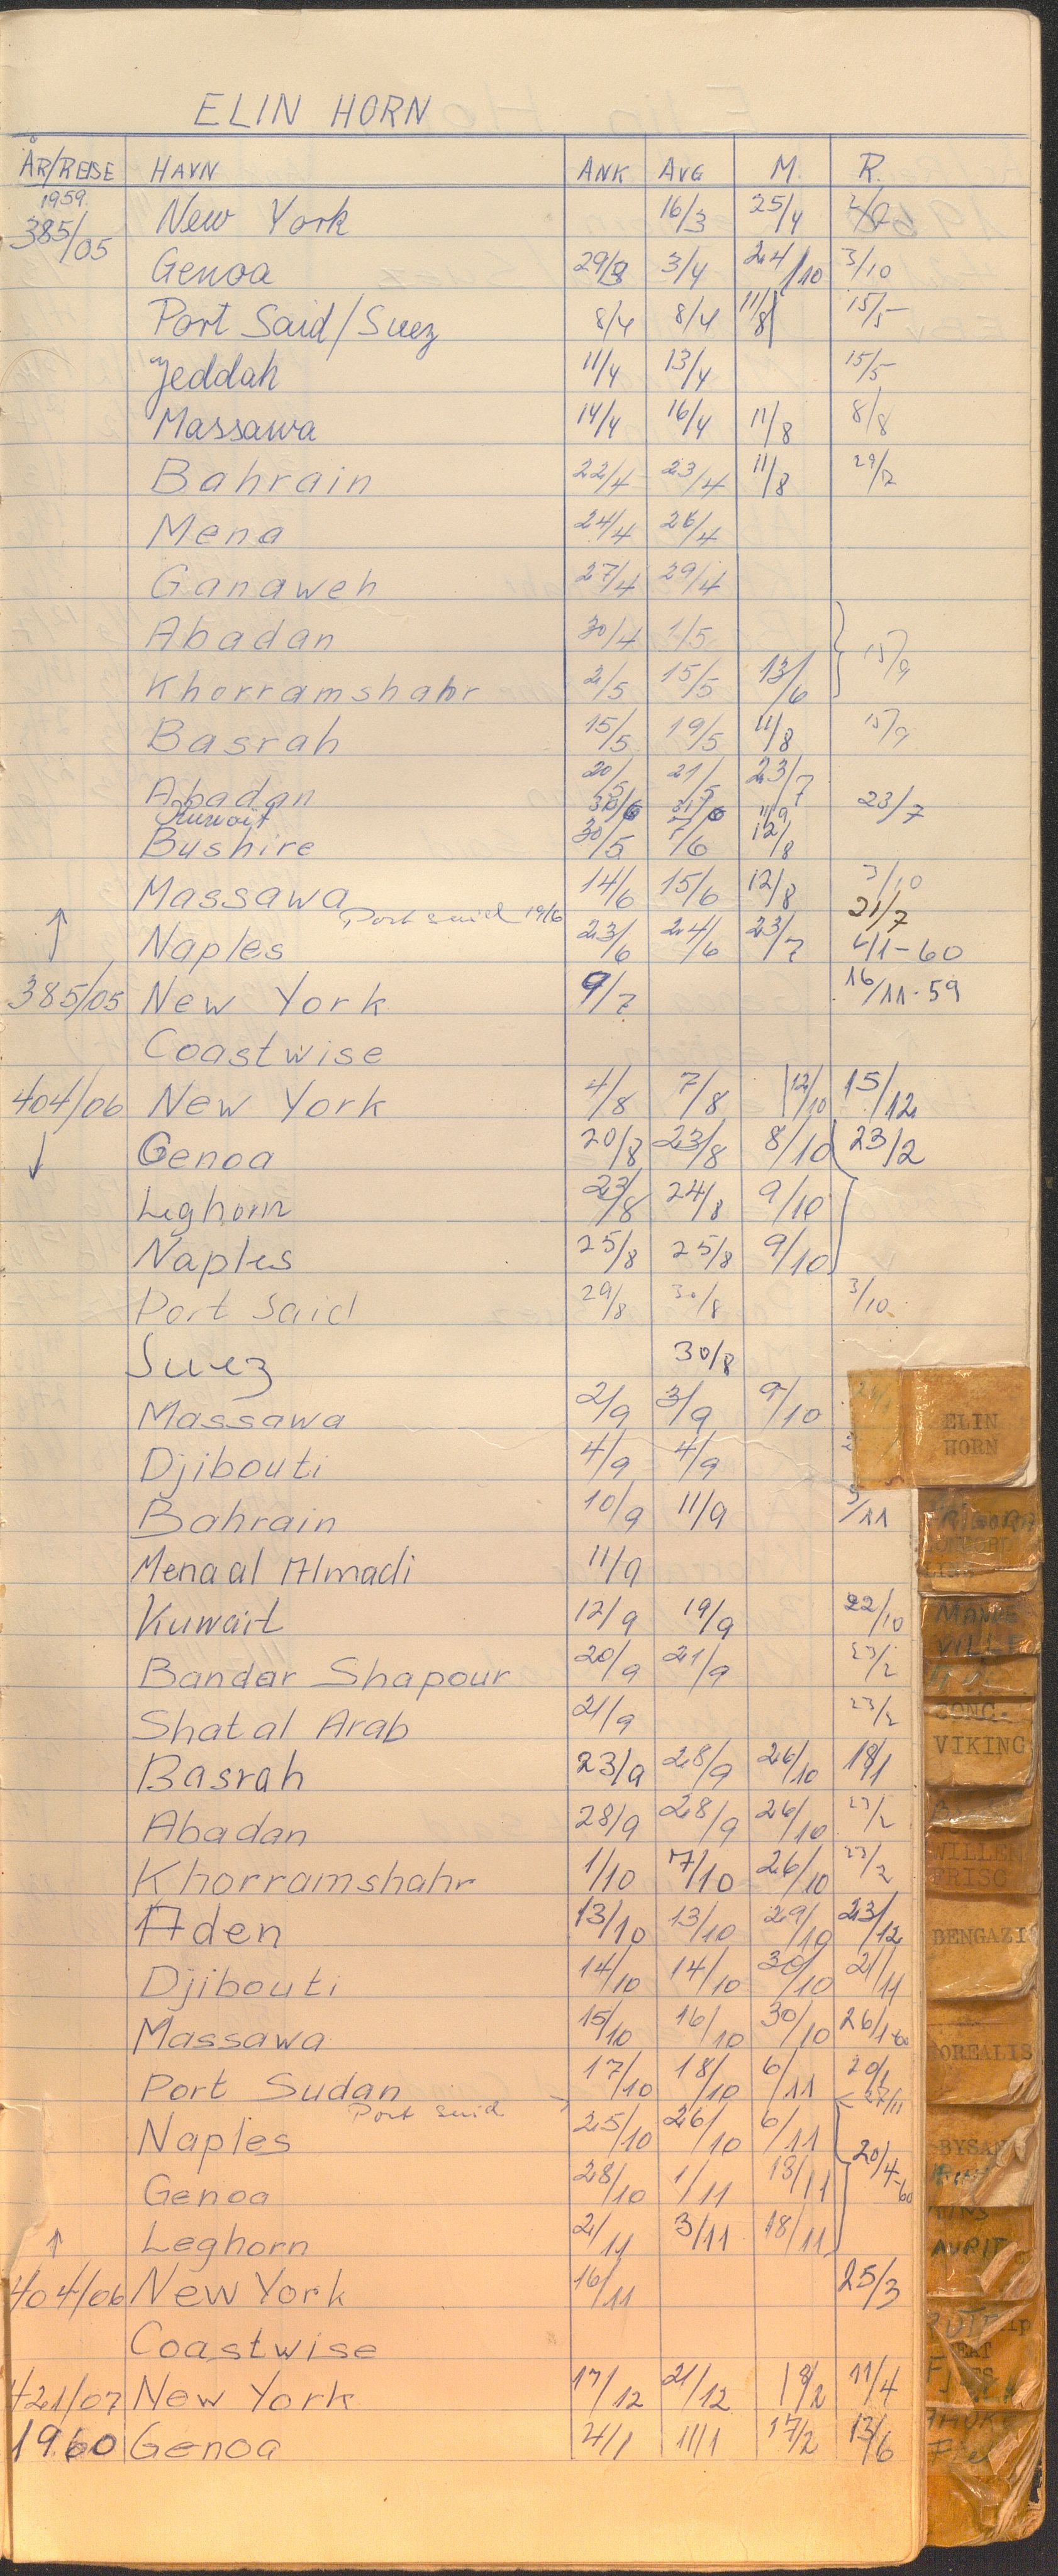 ELIN HORN
ÅR/REISE HAVN ANK AVG M. R.
1959.
385/05 New York 16/3 25/4
Genoa 29/3 3/4 24/10 3/10
Port Said/Suez 8/4 8/4 11/8 15/5
Jeddah 11/4 13/4 15/5
Massawa 14/4 16/4 11/8 8/8
Bahrain 22/4 23/4 11/8 29/12
Mena 24/4 26/4
Ganaweh 27/4 29/4
Abadan 30/4 1/5
Khorramshahr 2/5 15/5 13/6 15/9
Basrah 15/5 19/5 11/8 15/9
Abadan 20/5 21/5 23/7
Kuwait 11/9 23/7
Bushire 30/5 7/6 12/8
Massawa 14/6 15/6 12/8 3/10
Port Said 19/6 21/7
↑ Naples 23/6 24/6 23/7 4/1-60
385/05 New York 9/7 16/11-59
Coastwise
404/06 New York 4/8 7/8 12/10 15/12
↓ Genoa 20/8 23/8 8/10 23/2
Leghorn 23/8 24/8 9/10
Naples 25/8 25/8 9/10
Port Said 29/8 30/8 3/10
Suez 30/8
Massawa 2/9 3/9 9/10
Djibouti 4/9 4/9
Bahrain 10/9 11/9 3/11
Mena al Ahmadi 11/9
Kuwait 12/9 19/9 22/10
Bandar Shapour 20/9 21/9 23/2
Shat al Arab 21/9 23/2
Basrah 23/9 28/9 26/10 18/1
Abadan 28/9 28/9 26/10 23/2
Khorramshahr 1/10 7/10 26/10 23/2
Aden 13/10 13/10 29/10 23/12
Djibouti 14/10 14/10 30/10 21/11
Massawa 15/10 16/10 30/10 26/1-60
Port Sudan 17/10 18/10 6/11 20/1
Port Said 27/11
Naples 25/10 26/10 6/11
Genoa 28/10 1/11 18/11 20/4-60
↑ Leghorn 2/11 3/11 18/11
404/06 New York 16/11 25/3
Coastwise
421/07 New York 17/12 21/12 18/2 11/4
1960 Genoa 4/1 11/1 17/2 13/6
ELIN
HORN
VILLE
CONC.
VIKING
WILLEM
FRISO
BENGAZI
BOREALIS